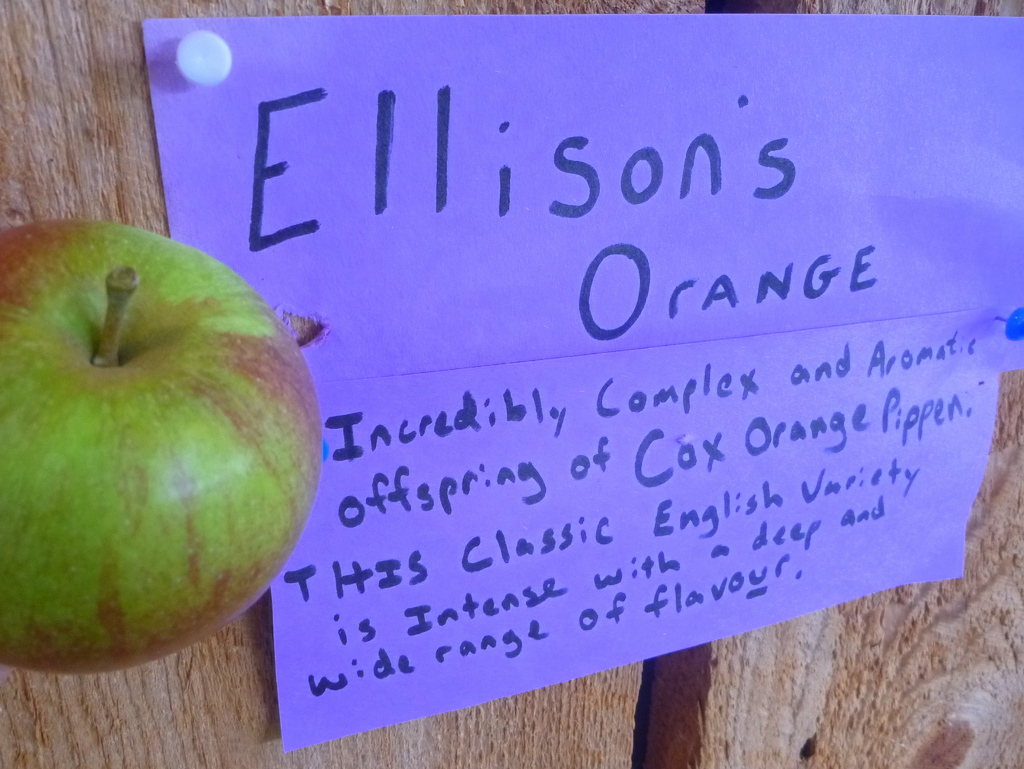 Ellison's
Orange
Incredibly Complex and Aromatic
offspring of Cox Orange Pippen.
THIS Classic English Variety
is Intense with a deep and
wide range of flavour.